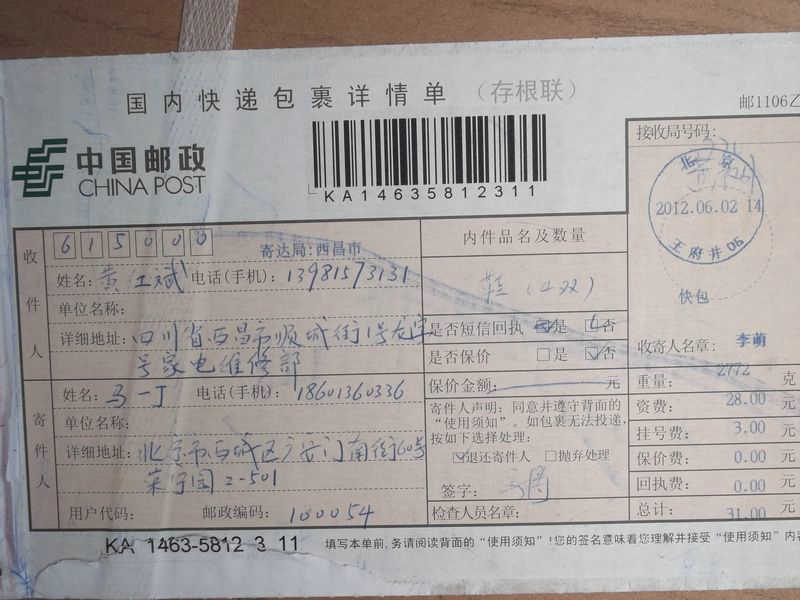 国内快递包裹详情单（存根联）
邮1106乙
中国邮政
CHINA POST
KA14635812311
接收局号码:
北京
2012.06.02 14
王府井06
快包
收寄人名章: 李萌
收件人
615000
寄达局:西昌市
姓名: 黄 斌 电话(手机): 13981573131
单位名称:
详细地址: 四川省西昌市顺城街1号
号家电维修部
内件品名及数量
鞋
是否短信回执 是 否
是否保价 是 否
保价金额: 元
寄件人
姓名: 马一丁 电话(手机): 18601360336
单位名称:
详细地址: 北京市西城区广安门南街60号
荣宁园2-501
用户代码: 邮政编码: 100054
寄件人声明: 同意并遵守背面的
“使用须知”。如包裹无法投递,
按如下选择处理:
退还寄件人 抛弃处理
签字:
检查人员名章:
重量: 2772 克
资费: 28.00 元
挂号费: 3.00 元
保价费: 0.00 元
回执费: 0.00 元
总计: 31.00 元
KA 1463-5812 3 11
填写本单前,务请阅读背面的“使用须知”!您的签名意味着您理解并接受“使用须知”内